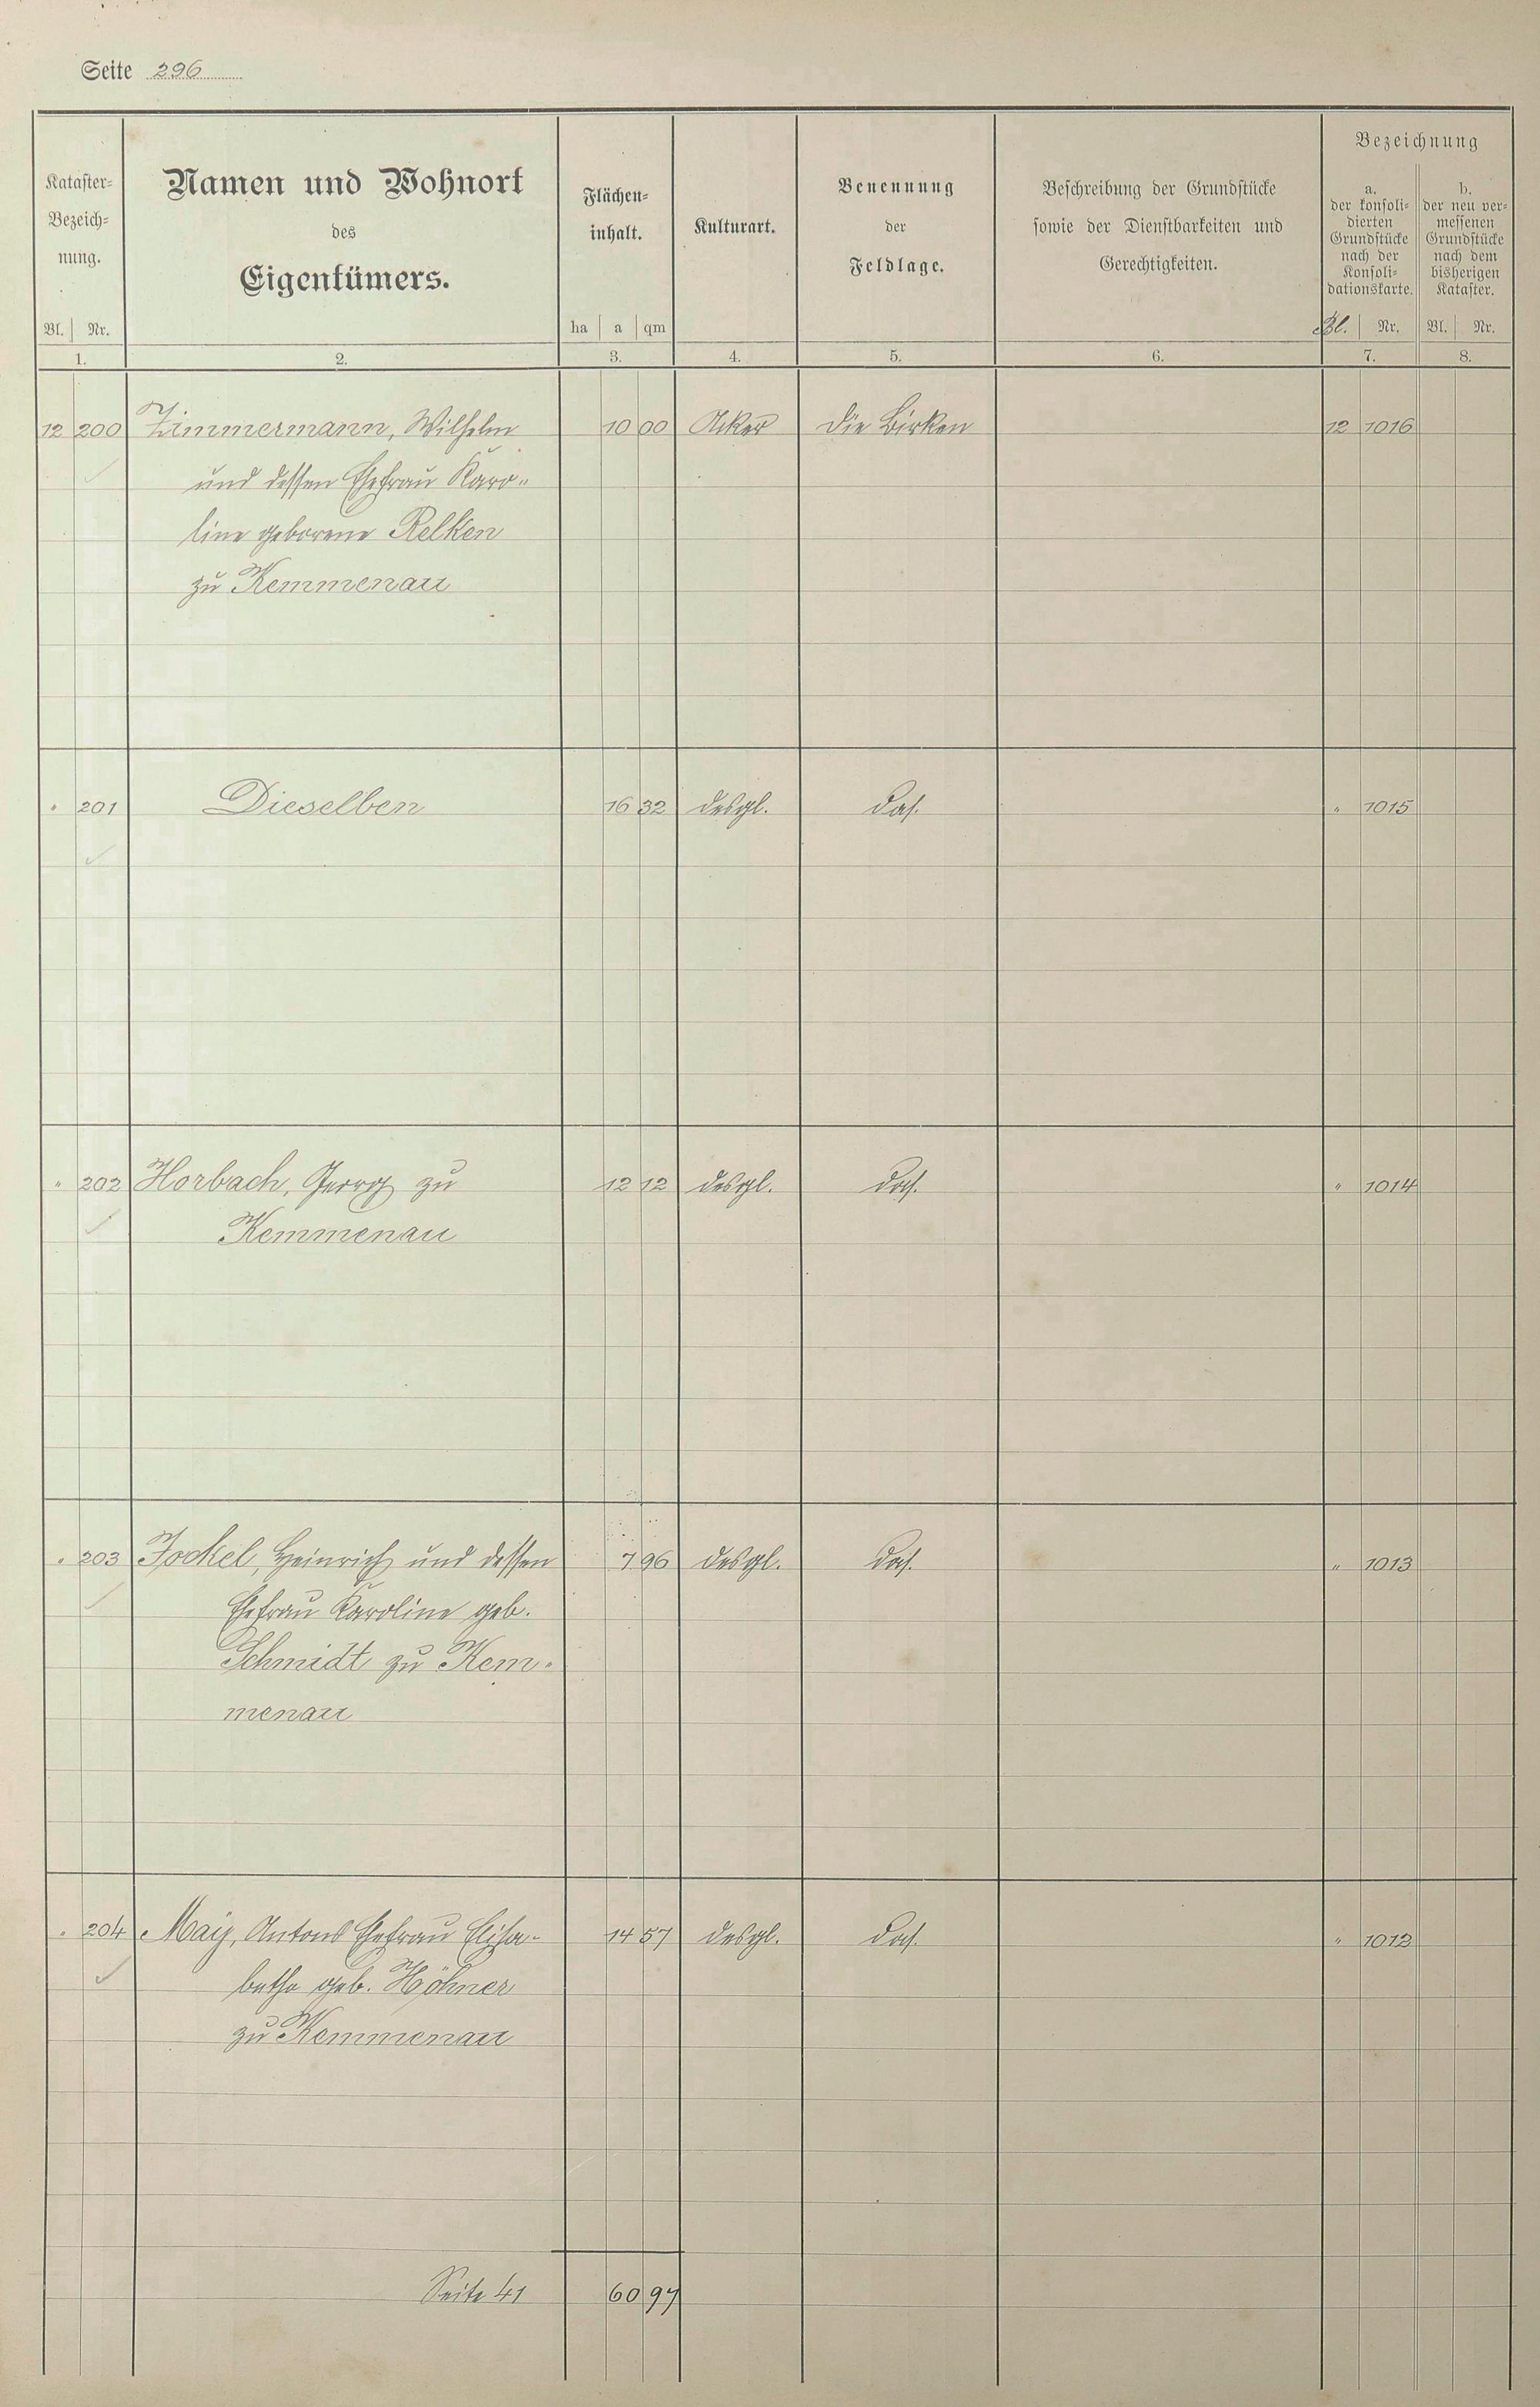 Seite 296
Kataster-
Bezeich-
nung.
Bl. Nr.
1.
Namen und Wohnort
des
Eigentümers.
2.
Flächen-
inhalt.
ha a qm
3.
Kulturart.
4.
Benennung
der
Feldlage.
5.
Beschreibung der Grundstücke
sowie der Dienstbarkeiten und
Gerechtigkeiten.
6.
Bezeichnung
a.
der konsoli-
dierten
Grundstücke
nach der
Konsoli-
dationskarte.
Bl. Nr.
7.
b.
der neu ver-
messenen
Grundstücke
nach dem
bisherigen
Kataster.
Bl. Nr.
8.
12 200 Zimmermann, Wilhelm 10 00 Acker die Birken 12 1016
und dessen Ehefrau Karo-
line geborene Relken
zu Kemmenau
" 201 Dieselben 16 32 desgl. das. " 1015
" 202 Horbach, Georg zu 12 12 desgl. das. " 1014
Kemmenau
" 203 Jockel, Heinrich und dessen 7 96 desgl. das. " 1013
Ehefrau Karoline geb.
Schmidt zu Kem-
menau
" 204 May, Antons Ehefrau Elisa- 14 57 desgl. das. " 1012
betha geb. Höhner
zu Kemmenau
Seite 41 60 97